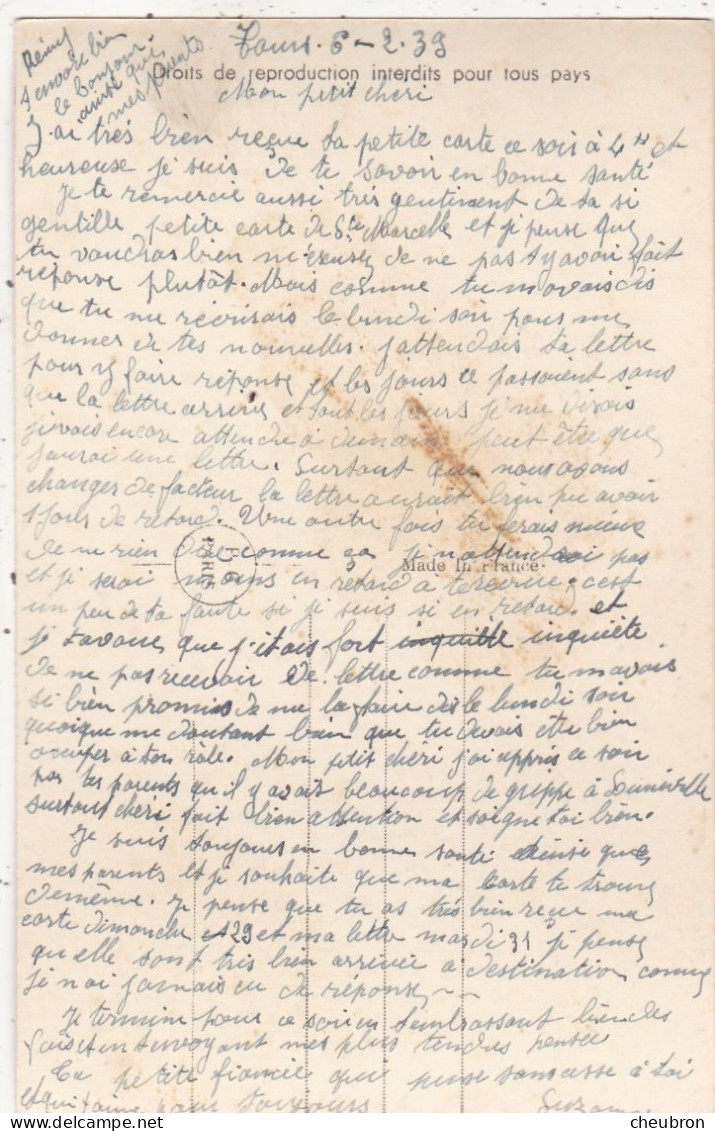 Tours. 6-2.39
Rémy
t envoie bien
le bonjour
ainsi que
mes parents
Droits de reproduction interdits pour tous pays
Mon petit chéri
J.ai très bien reçue ta petite carte ce soir à 4 H et
heureuse je suis de te savoir en bonne santé
Je te remercie aussi très gentiment de ta si
gentille petite carte de Ste Marcelle et je pense que
tu voudras bien m'éxcuser de ne pas t y avoir fait
réponse plutôt. Mais comme tu m avais dis
que tu me récrirais le lundi soir pour me
donner de tes nouvelles. j attendais ta lettre
pour y faire réponse et les jours ce passaient sans
que la lettre arrive et tout les jours je me disais
je vais encore attendre à demain peut être que
j aurai une lettre. Surtout que nous avons
changer de facteur la lettre aurait bien pu avoir
1 jour de retard. Une autre fois tu ferais mieux
de ne rien dire comme ça je n attendrai pas
et je serai moins en retard à te écrire, c est
un peu de ta faute si je suis si en retard. et
je t avoue que j'étais fort inquiète
de ne pas recevoir de lettre comme tu m avais
si bien promis de me la faire dès le lundi soir
quoique me doutant bien que tu devais être bien
occuper à ton rôle. Mon petit chéri j ai appris ce soir
par tes parents qu il y avait beaucoup de grippe à Lunéville
surtout chéri fait bien attention et soigne toi bien.
Je suis toujours en bonne santé ainsi que
mes parents et je souhaite que ma carte te trouve
de même. Je pense que tu as très bien reçue ma
carte dimanche 29 et ma lettre mardi 31 je pense
qu elle sont très bien arrivée à destination comme
je n ai jamais eu de réponse
Je termine pour ce soir en t embrassant bien des
fois et en t envoyant mes plus tendres pensée
Ta petite fiancée qui pense sans cesse à toi
et qui t aime pour toujours Suzanne
PARIS
Made In France